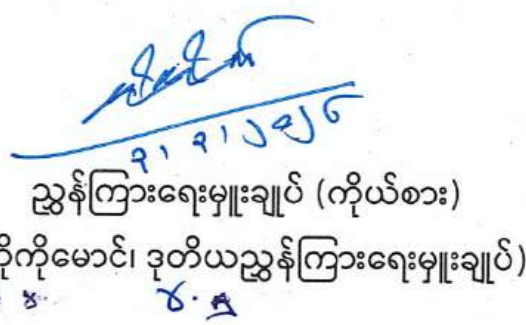 ၃၊ ၃၊ ၂၀၂၆
ညွှန်ကြားရေးမှူးချုပ် (ကိုယ်စား)
ကိုကိုမောင်၊ ဒုတိယညွှန်ကြားရေးမှူးချုပ်)